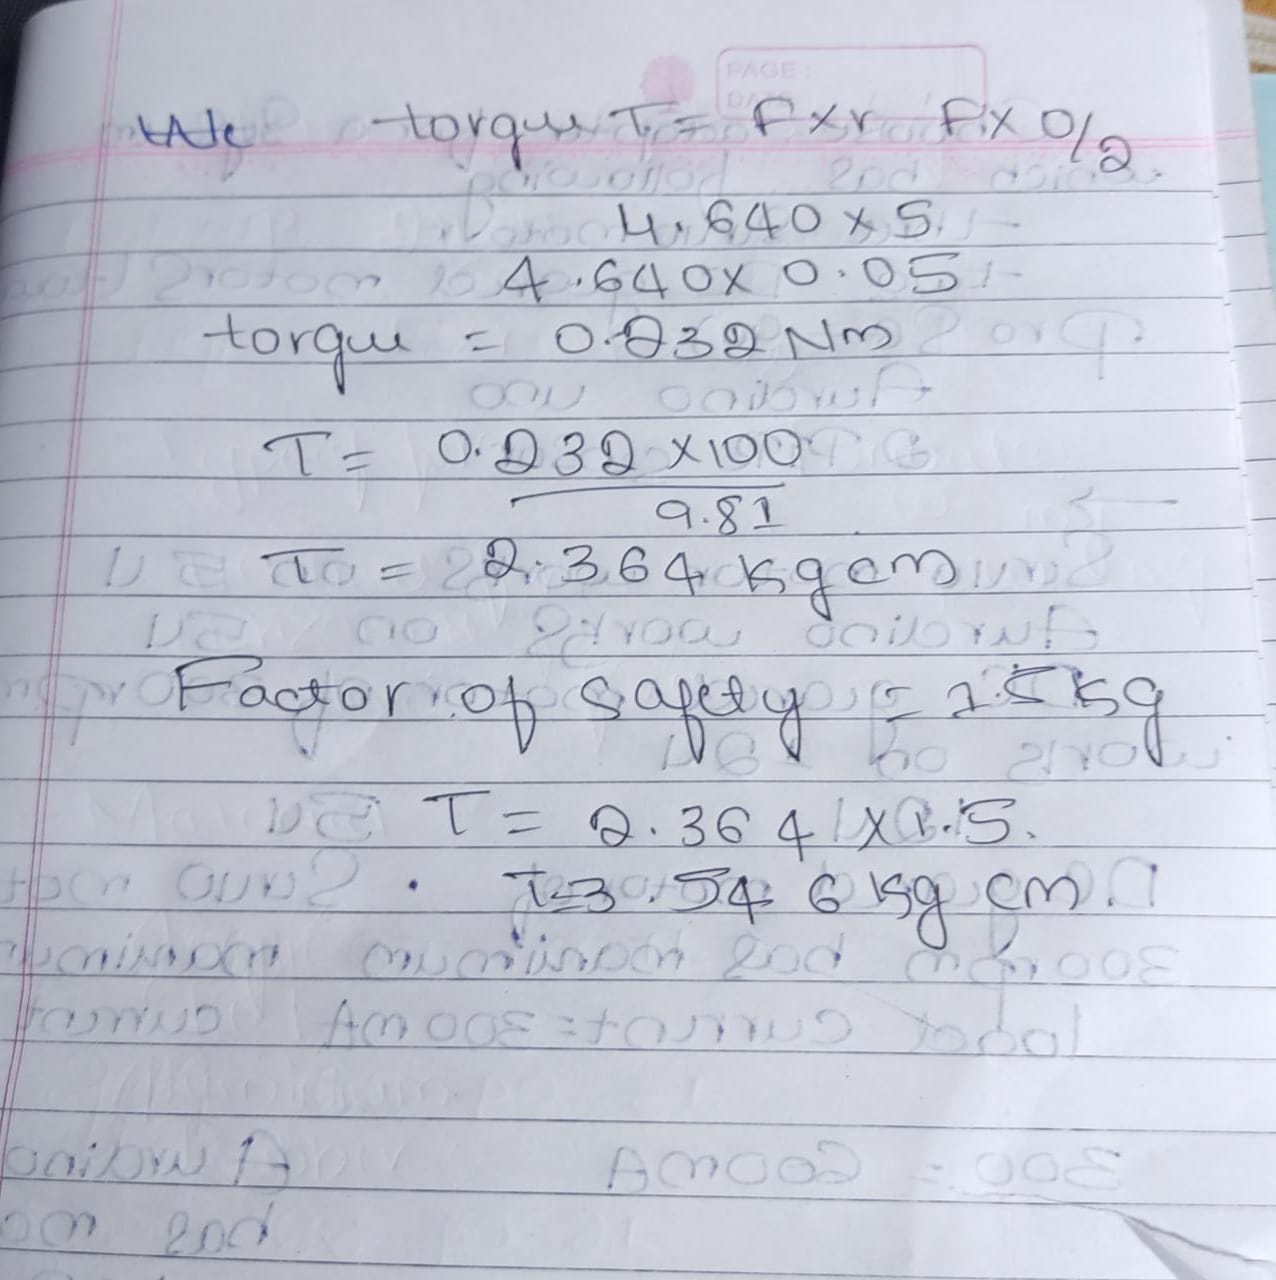 PAGE:
DATE
torque T = F x r F x D/2.
4.640 x 5.
4.640 x 0.05
torque = 0.232 Nm
T = 0.232 x 100
9.81
T = 2.364 kg cm
Factor of safety = 1.5 kg
T = 2.364 x 1.5.
T = 3.546 kg cm.